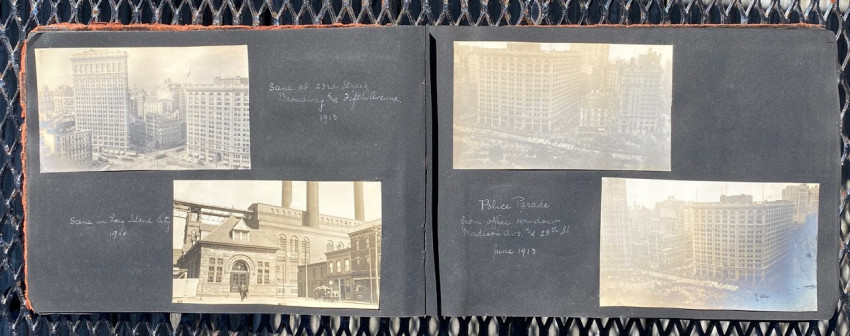 Scene at 23rd Street
Broadway & Fifth Avenue
1913
Scene in Long Island City
1910
Police Parade
from office window
Madison Ave. & 25th St.
June 1913